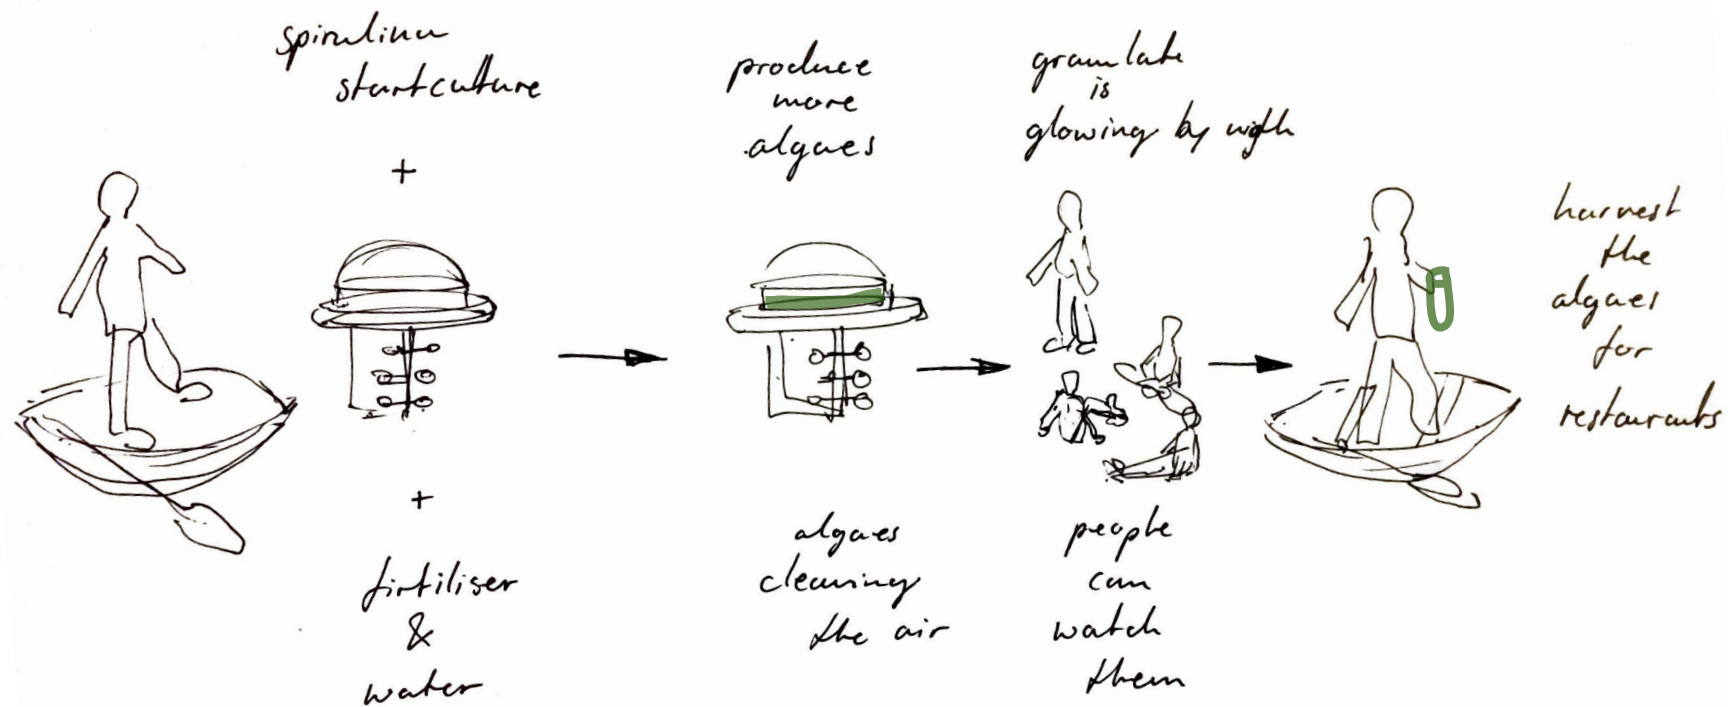 spirulina
startculture
+
+
firtiliser
&
water
produce
more
algaes
algaes
cleaning
the air
granulate
is
glowing by nigth
people
can
watch
them
harvest
the
algaes
for
restaurants